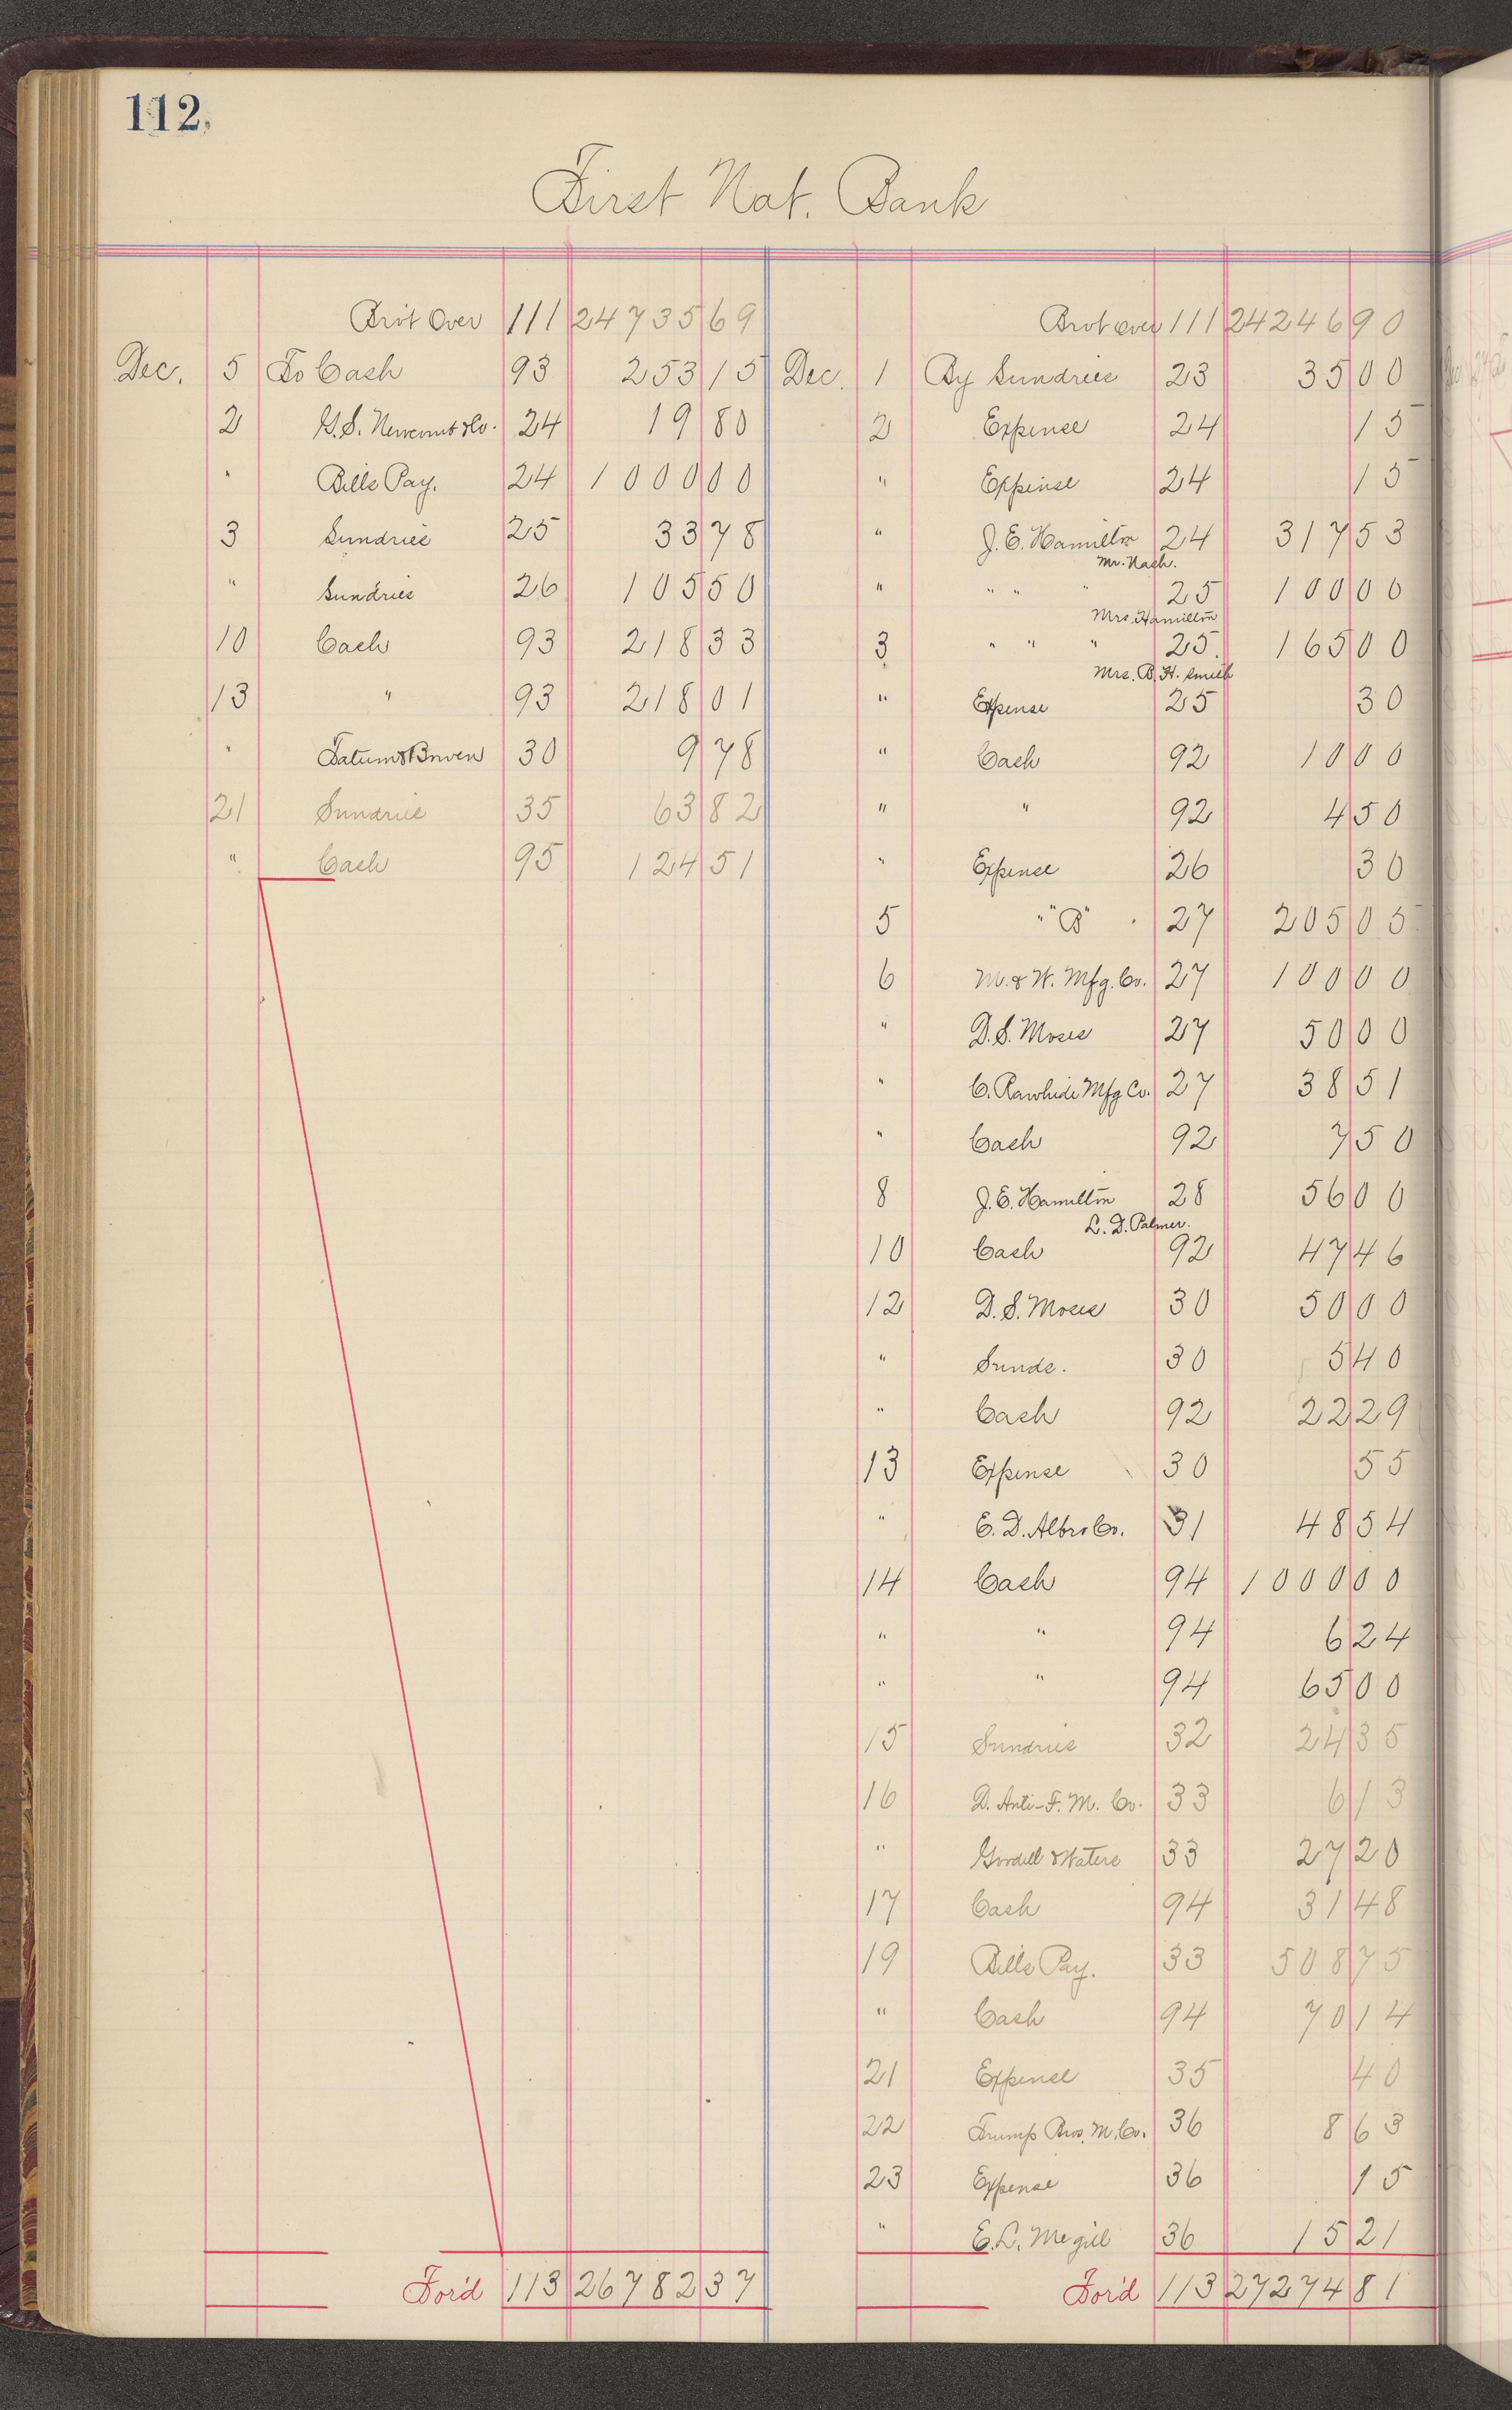 112.
First Nat. Bank
Bro't Over 111 24735 69
Dec. 5 To Cash 93 253 15
2 G.S. Newcomb & Co. 24 19 80
" Bills Pay. 24 1000 00
3 Sundries 25 33 78
" Sundries 26 105 50
10 Cash 93 218 33
13 " 93 218 01
" Tatum & Bowen 30 9 78
21 Sundries 35 63 82
" Cash 95 124 51
For'd 113 26782 37
Bro't over 111 24246 90
Dec. 1 By Sundries 23 35 00
2 Expense 24 15
" Expense 24 15
" J.E. Hamilton 24 317 53
Mr. Nash.
" " " " 25 100 00
Mrs. Hamilton
3 " " " 25 165 00
Mrs. B.H. Smith
" Expense 25 30
" Cash 92 10 00
" " 92 4 50
" Expense 26 30
5 " "B" " 27 205 05
6 M. & W. Mfg. Co. 27 100 00
" D.S. Moses 27 50 00
" C. Rawhide Mfg Co. 27 38 51
" Cash 92 7 50
8 J.E. Hamilton 28 56 00
L. D. Palmer.
10 Cash 92 47 46
12 D.S. Moses 30 50 00
" Sunds. 30 5 40
" Cash 92 22 29
13 Expense 30 55
" E.D. Albro Co. 31 48 54
14 Cash 94 1000 00
" " 94 6 24
" " 94 65 00
15 Sundries 32 24 35
16 D. Anti-F. M. Co. 33 6 13
" Goodell & Waters 33 27 20
17 Cash 94 31 48
19 Bills Pay. 33 508 75
" Cash 94 70 14
21 Expense 35 40
22 Trump Bros. M. Co. 36 8 63
23 Expense 36 15
" E.L. Megill 36 15 21
For'd 113 27274 81